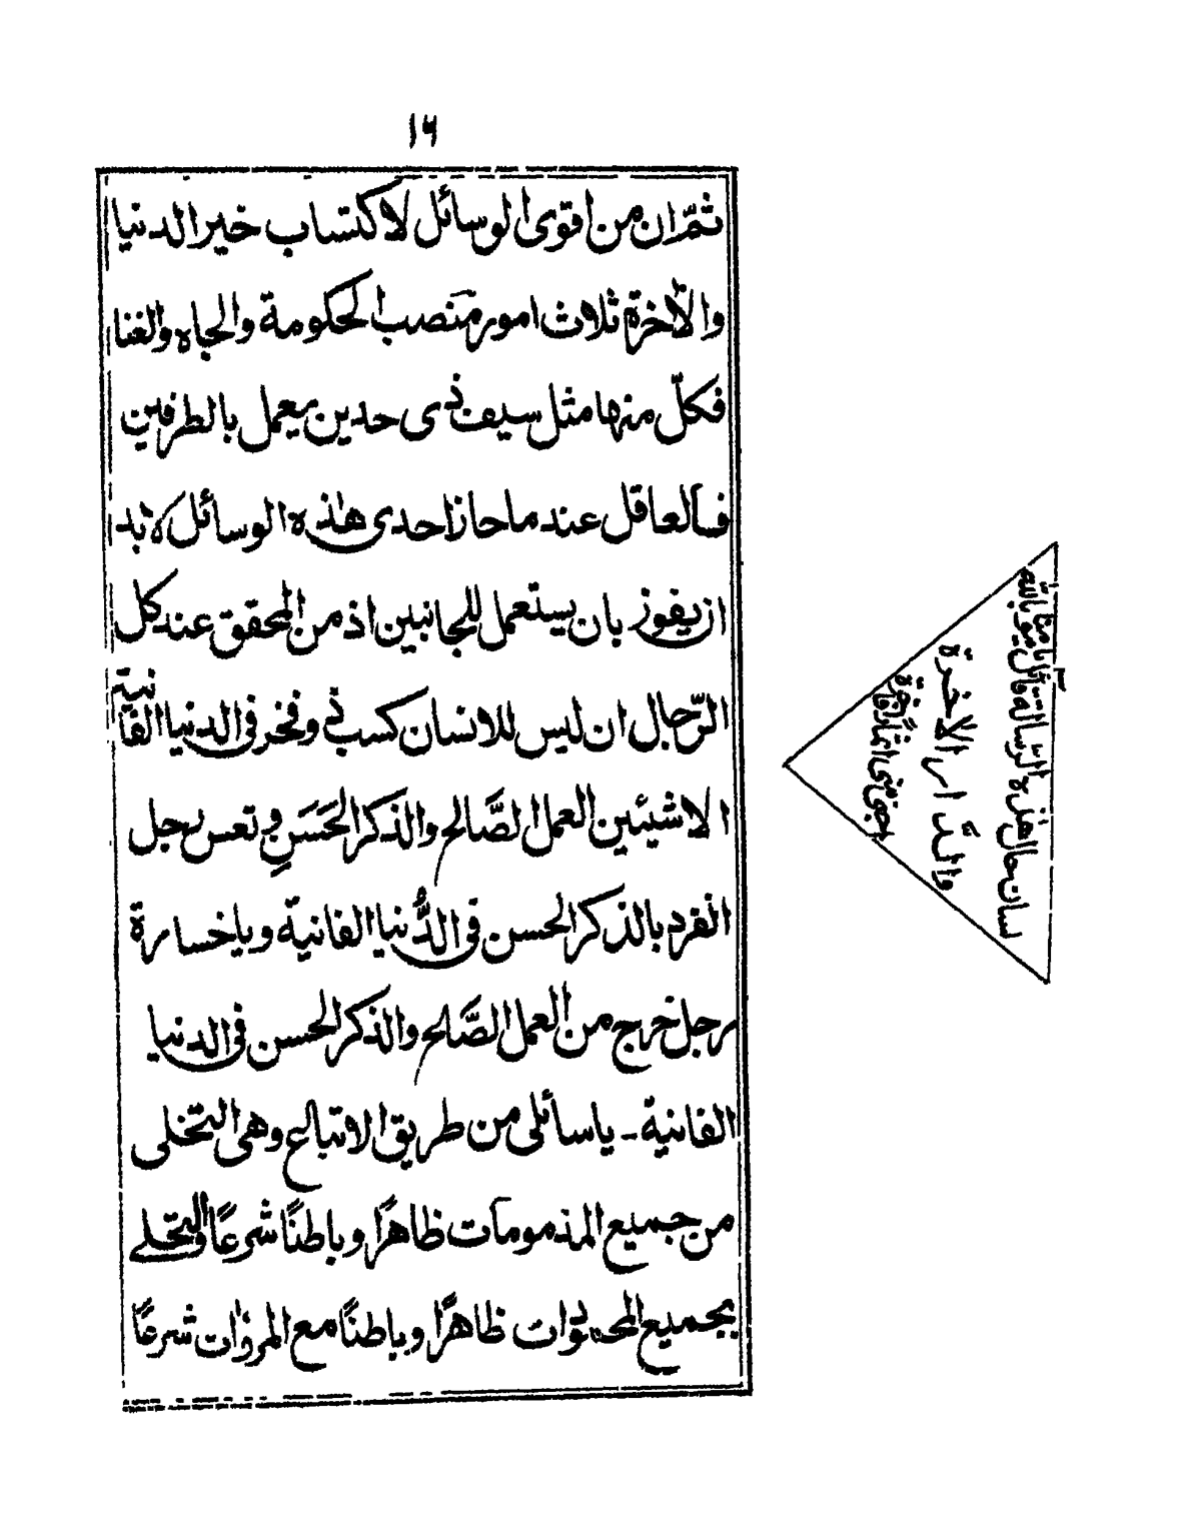 ١٦
ثمّ ان من اقوى الوسائل لاكتساب خير الدنيا
والآخرة ثلاث امور منصب الحكومة والجاه والغنا
فكلّ منها مثل سيف ذى حدين يعمل بالطرفين
فالعاقل عند ما حاز احدى هذه الوسائل لابد
ان يفوز بان يستعمل للجانبين اذ من المحقق عند كل
الرّجال ان ليس للانسان كسب فى وفخر فى الدنيا الفانية
الا شيئين العمل الصَّالح والذكر الحَسَنِ وتعس رجل
انفرد بالذكر الحسن فى الدُّنيا الفانية ويا خسارة
رجل خرج من العمل الصَّلح والذكر الحسن فى الدنيا
الفانية ـ يا سائلى من طريق الاتباع وهى التخلى
من جميع المذمومات ظاهرًا وباطنًا شرعًا والتحلے
بجميع المحمودات ظاهرًا وباطنًا مع المروٰات شرعًا
لسان حال هذه الرّسالة قائل
والدّار الاخرة